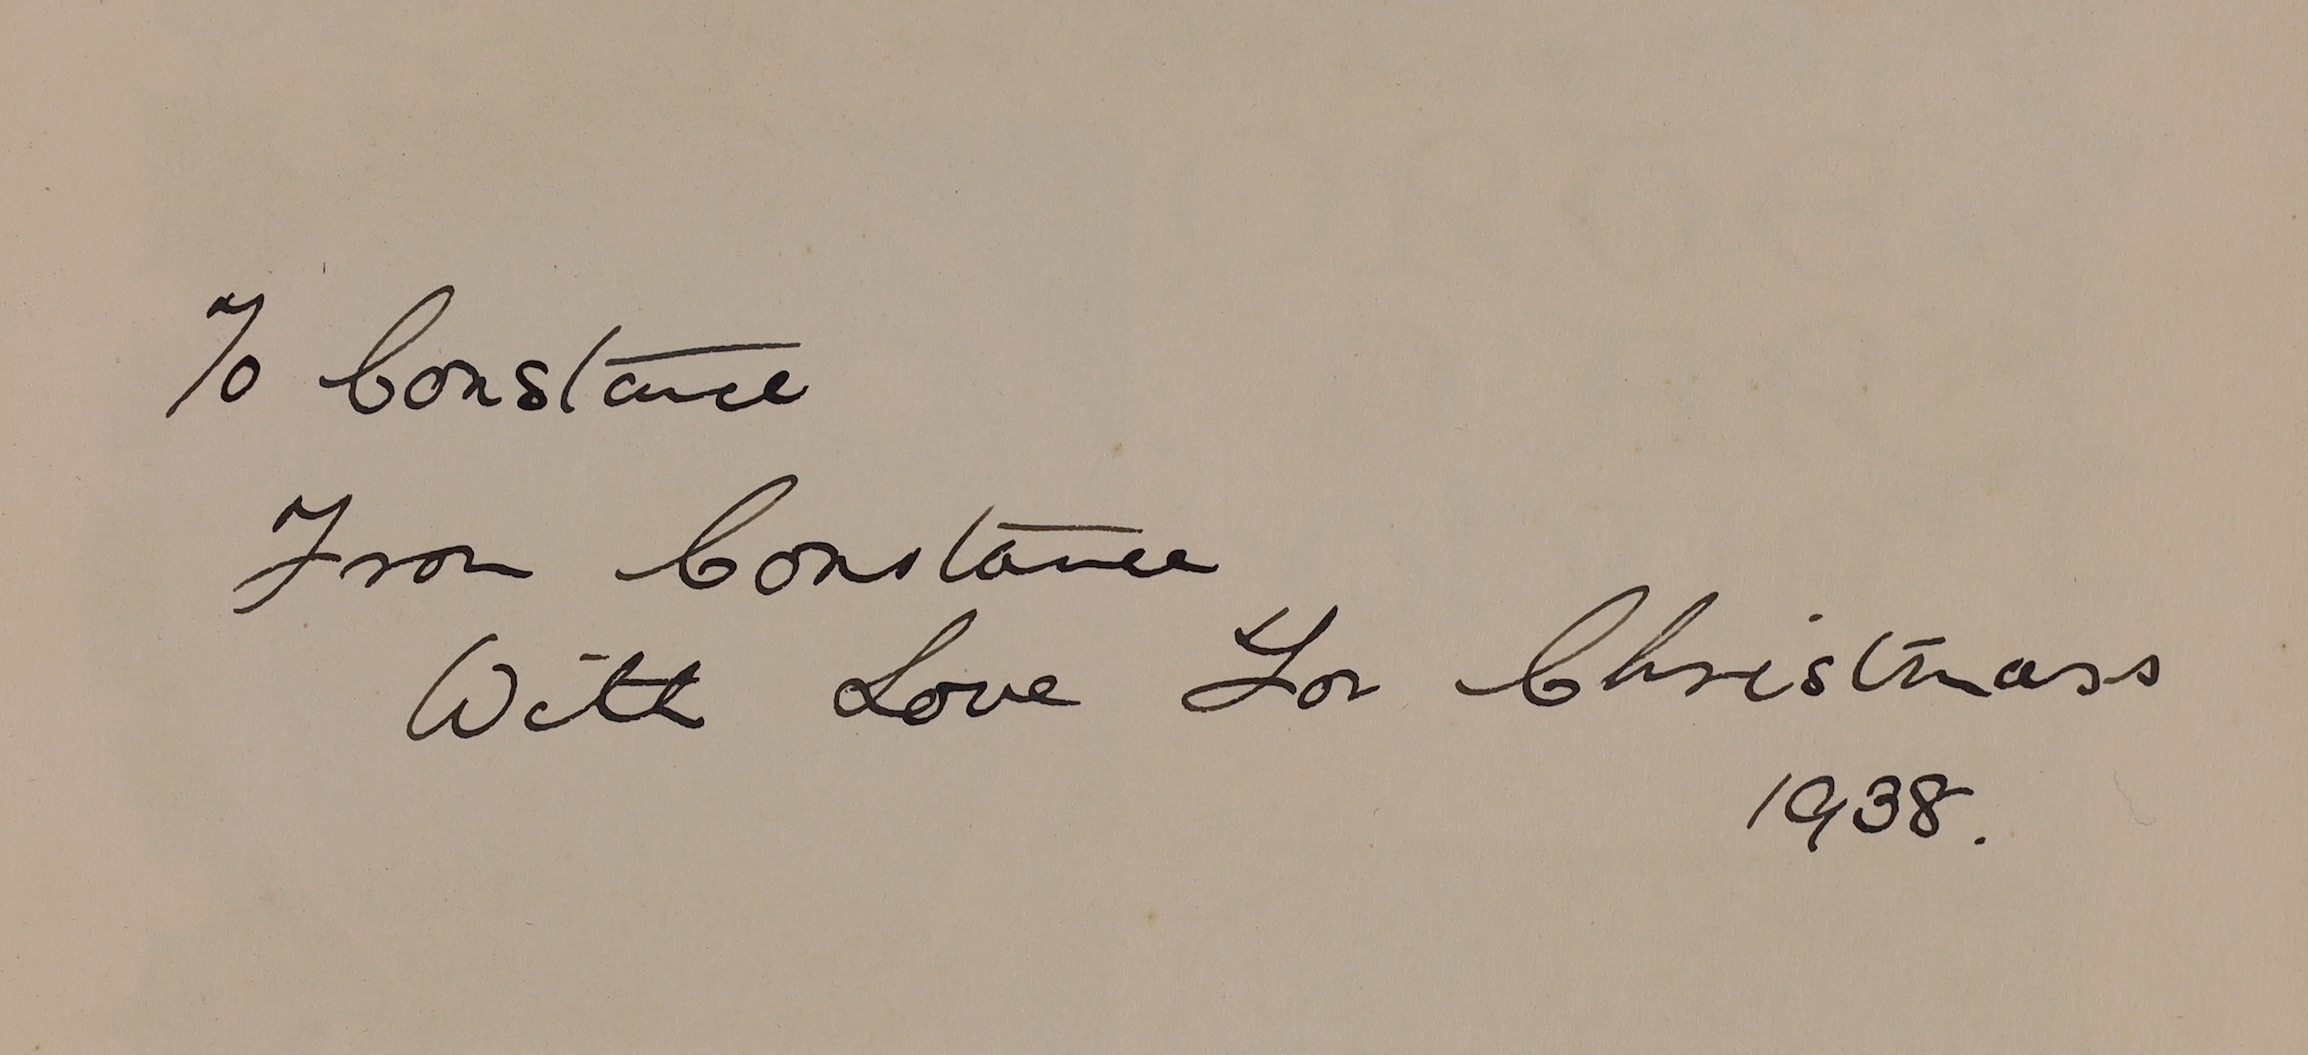 To Constance
From Constance
With Love For Christmass
1938.